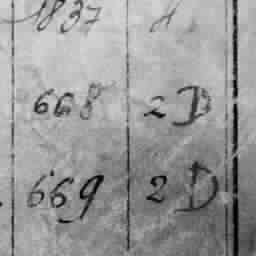 1837
668 2D
669 2D